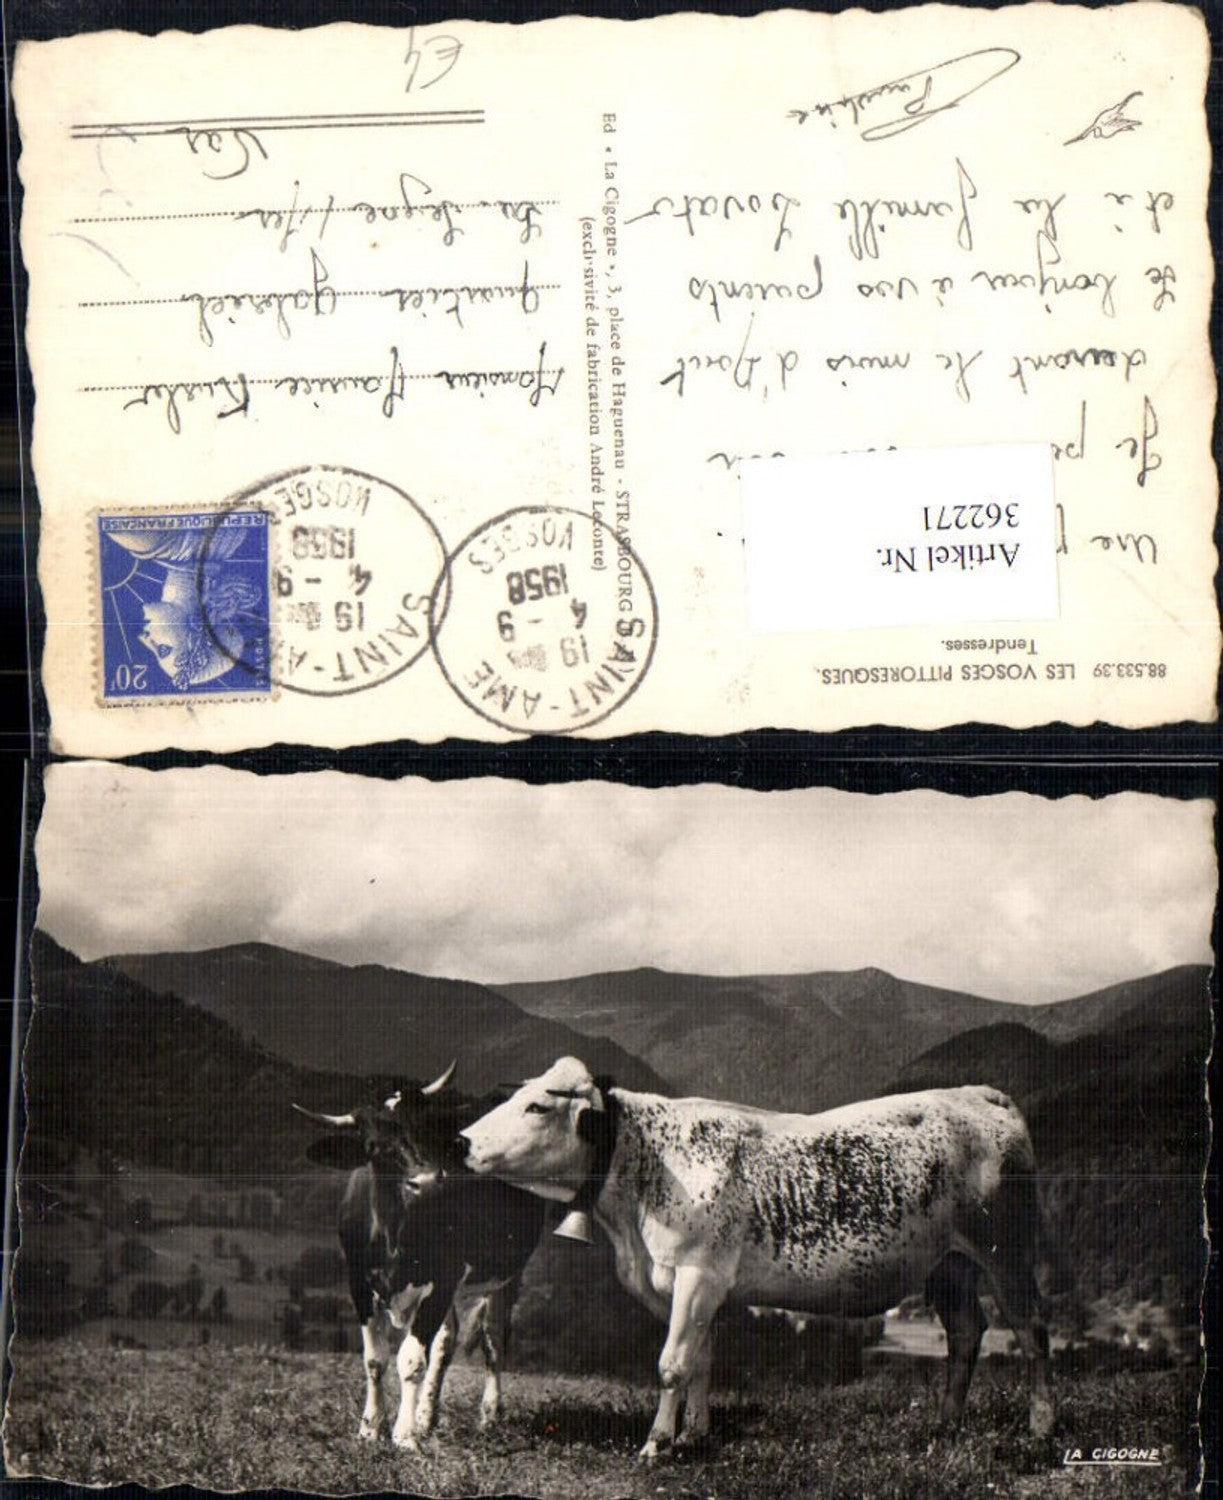 88.533.39 LES VOSGES PITTORESQUES.
Tendresses.
Artikel Nr.
362271
Une
Je
devant le mois d'Aout
le bonjour à vos parents
et à la famille Lovato
Ed « La Cigogne », 3, place de Haguenau - STRASBOURG
(exclusivité de fabrication André Leconte)
SAINT-AME
19
4 - 9
1958
VOSGES
SAINT-A
19
4 - 9
1958
VOSGES
20F
POSTES
REPUBLIQUE FRANÇAISE
Monsieur Maurice
quartier Gabriel
La Seyne s/Mer
Var
E4
LA CIGOGNE